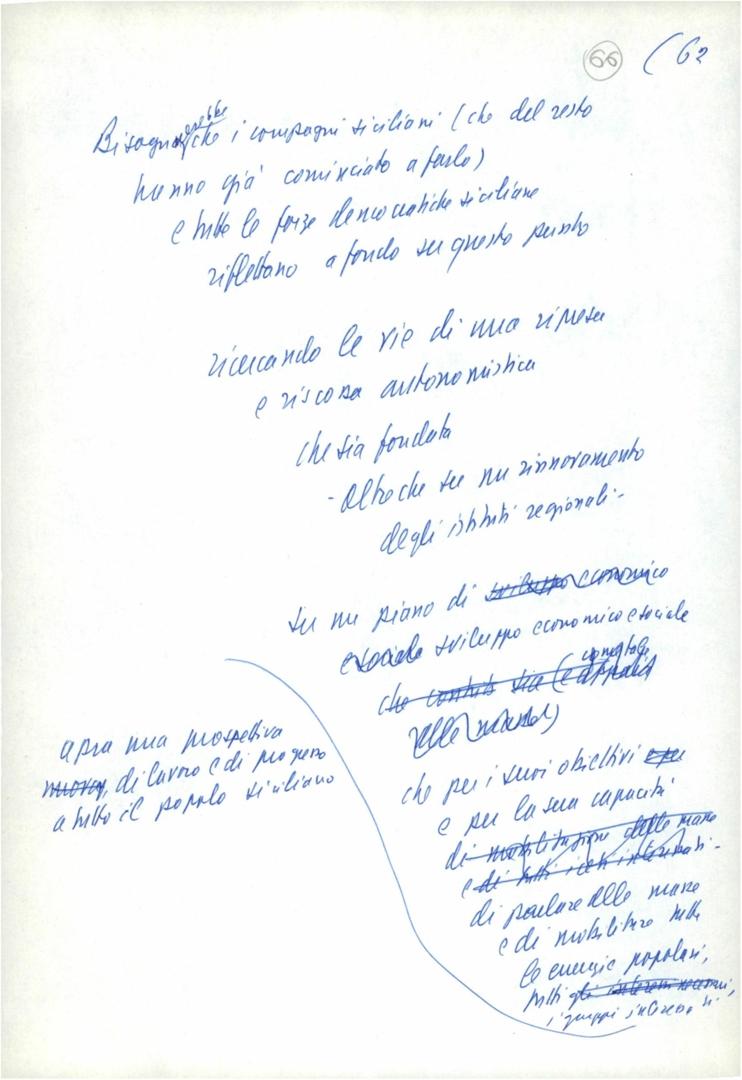 66 (62
Bisognerebbe che i compagni siciliani (che del resto
hanno già cominciato a farlo)
e tutte le forze democratiche siciliane
riflettano a fondo su questo punto
ricercando le vie di una ripresa
e riscossa autonomistica
che sia fondata
- oltre che su un rinnovamento
degli istituti regionali -
su un piano di sviluppo economico
e sociale sviluppo economico e sociale
che sia (e appaia
alle masse)
che per i suoi obiettivi
e per la sua capacità
di mobilitazione delle masse
e di tutti i ceti interessati -
di parlare alle masse
e di mobilitare tutte
le energie popolari,
tutti gli interessi
i gruppi interessati
apra una prospettiva
nuova, di lavoro e di progresso
a tutto il popolo siciliano